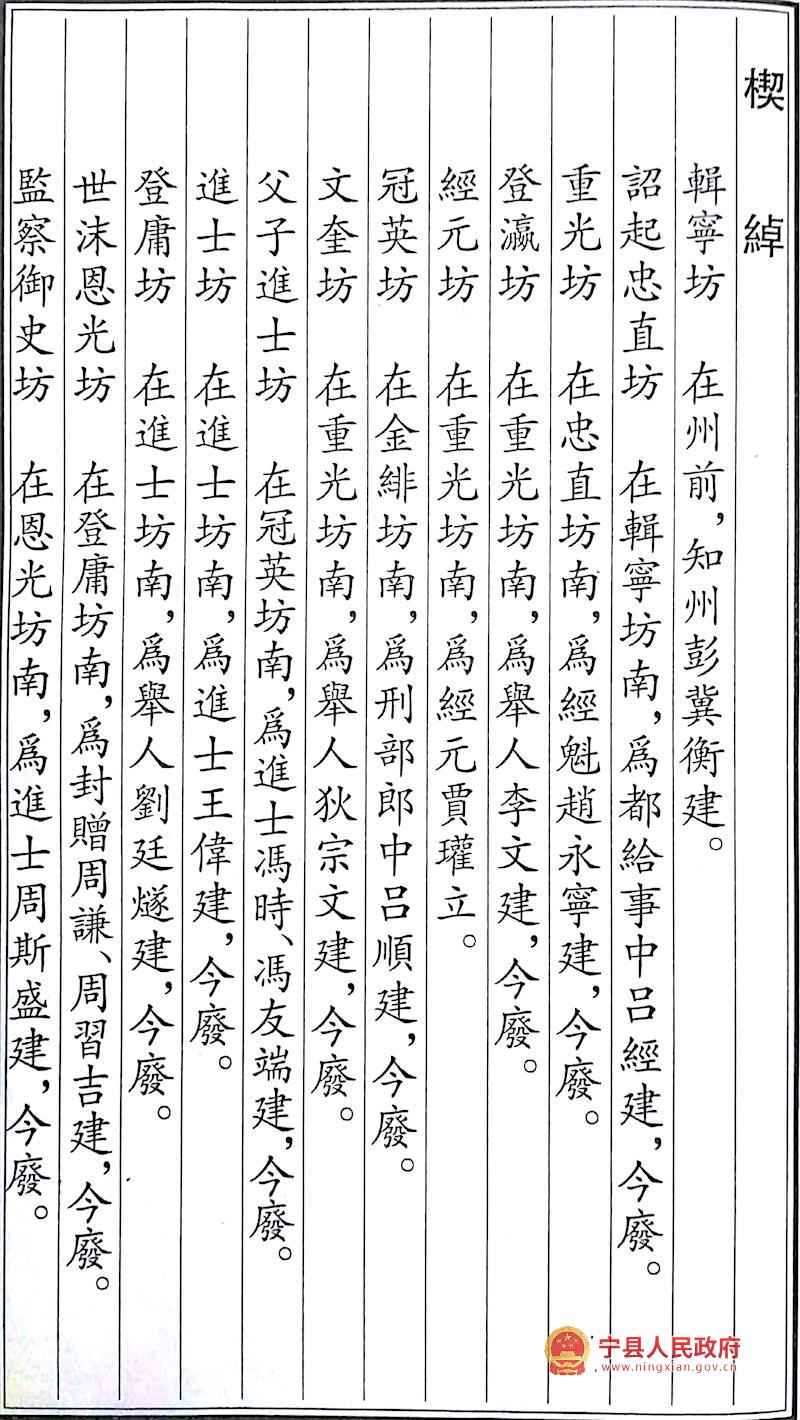 楔綽
輯寧坊　在州前，知州彭冀衡建。
詔起忠直坊　在輯寧坊南，爲都給事中吕經建，今廢。
重光坊　在忠直坊南，爲經魁趙永寧建，今廢。
登瀛坊　在重光坊南，爲舉人李文建，今廢。
經元坊　在重光坊南，爲經元賈瓘立。
冠英坊　在金緋坊南，爲刑部郎中吕順建，今廢。
文奎坊　在重光坊南，爲舉人狄宗文建，今廢。
父子進士坊　在冠英坊南，爲進士馮時、馮友端建，今廢。
進士坊　在進士坊南，爲進士王偉建，今廢。
登庸坊　在進士坊南，爲舉人劉廷燧建，今廢。
世沬恩光坊　在登庸坊南，爲封贈周謙、周習吉建，今廢。
監察御史坊　在恩光坊南，爲進士周斯盛建，今廢。
宁县人民政府
www.ningxian.gov.cn